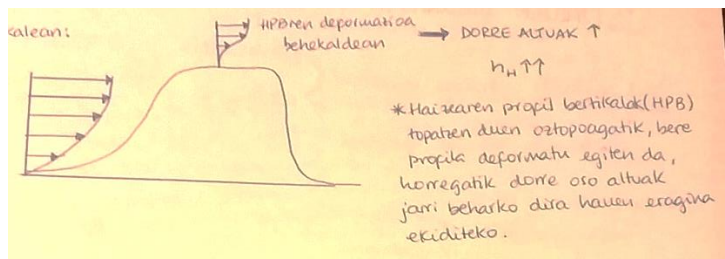 kalean:
HPBren deformatioa
behekaldean → DORRE ALTUAK ↑
h_H ↑↑
*Haizearen profil bertikalak (HPB)
topatzen duen oztopoagatik, bere
profila deformatu egiten da,
horregatik dorre oso altuak
jarri beharko dira hauen eragina
ekiditeko.